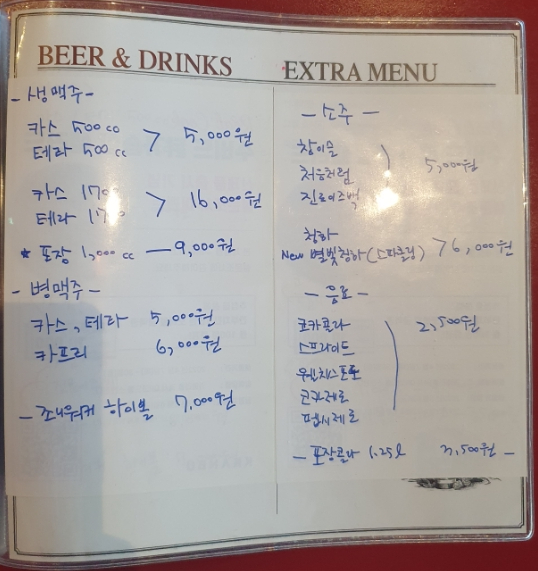 BEER & DRINKS
- 생맥주 -
카스 500cc
테라 500cc > 5,000원
카스 1700
테라 1700 > 16,000원
* 포장 1,000cc — 9,000원
- 병맥주 -
카스, 테라 5,000원
카프리 6,000원
- 죠니워커 하이볼 7,000원
EXTRA MENU
- 소주 -
참이슬
처음처럼 5,000원
진로이즈백
청하
New 별빛청하(스파클링) > 6,000원
- 음료 -
코카콜라 2,500원
스프라이트
웰치스포도
코카제로
펩시제로
- 포장콜라 1.25l 3,500원 -